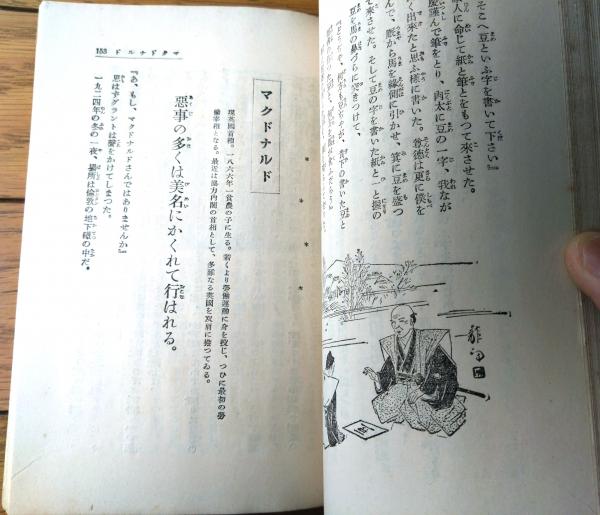 そこへ豆といふ字を書いて下さい』
人に命じて紙と筆とをもつて來させた。
慶謹んで筆をとり、肉太に豆の一字、我なが
く出來たと思ふ樣に書いた。尊德は更に僕を
んで、厩から馬を緣側に引かせ、箕に豆を盛つ
て來させた。そして豆の字を書いた紙と一と握の
を馬の鼻づらに突きつけて、
豆
153 ドルナドクマ
マクドナルド
現英國首相。一八六六年一貧農の子に生る。若くより勞働運動に身を投じ、つひに最初の勞
働宰相となる。最近は擧力內閣の首相として、多難なる英國を双肩に擔つてゐる。
惡事の多くは美名にかくれて行はれる。
『あ、もし、マクドナルドさんではありませんか』
思はずグラントは聲をかけてしまつた。
一九二四年の冬の一夜、場所は倫敦の地下鐵の中だ。